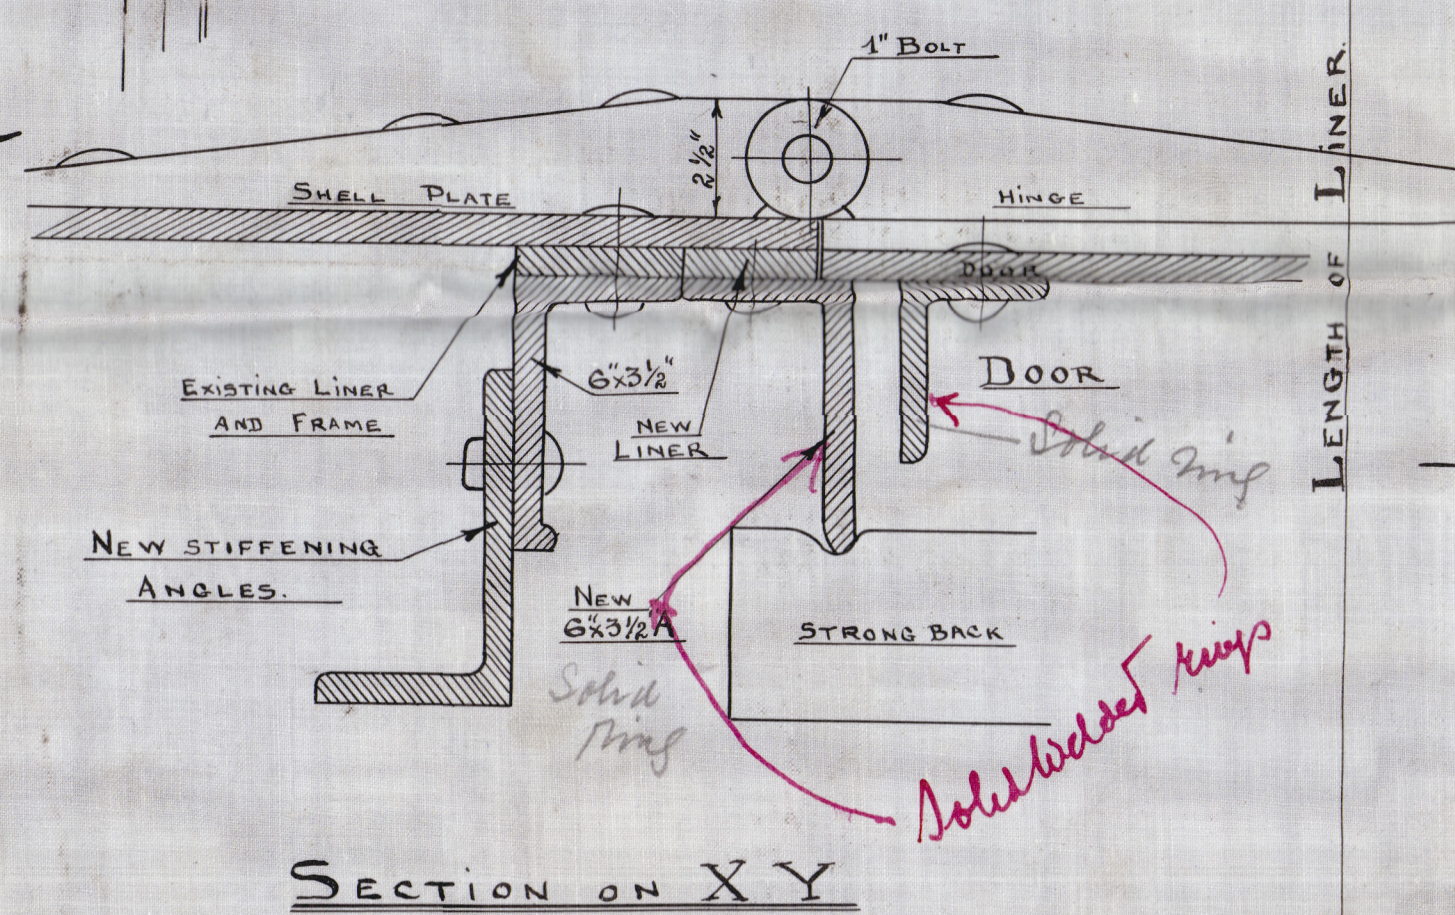 1" BOLT
2½"
SHELL PLATE
HINGE
DOOR
LENGTH OF LINER.
EXISTING LINER
AND FRAME
6"x3½"
NEW
LINER
DOOR
Solid ring
NEW STIFFENING
ANGLES.
NEW
6"x3½"A
STRONG BACK
Solid
ring
Solid welded rings
SECTION ON X Y